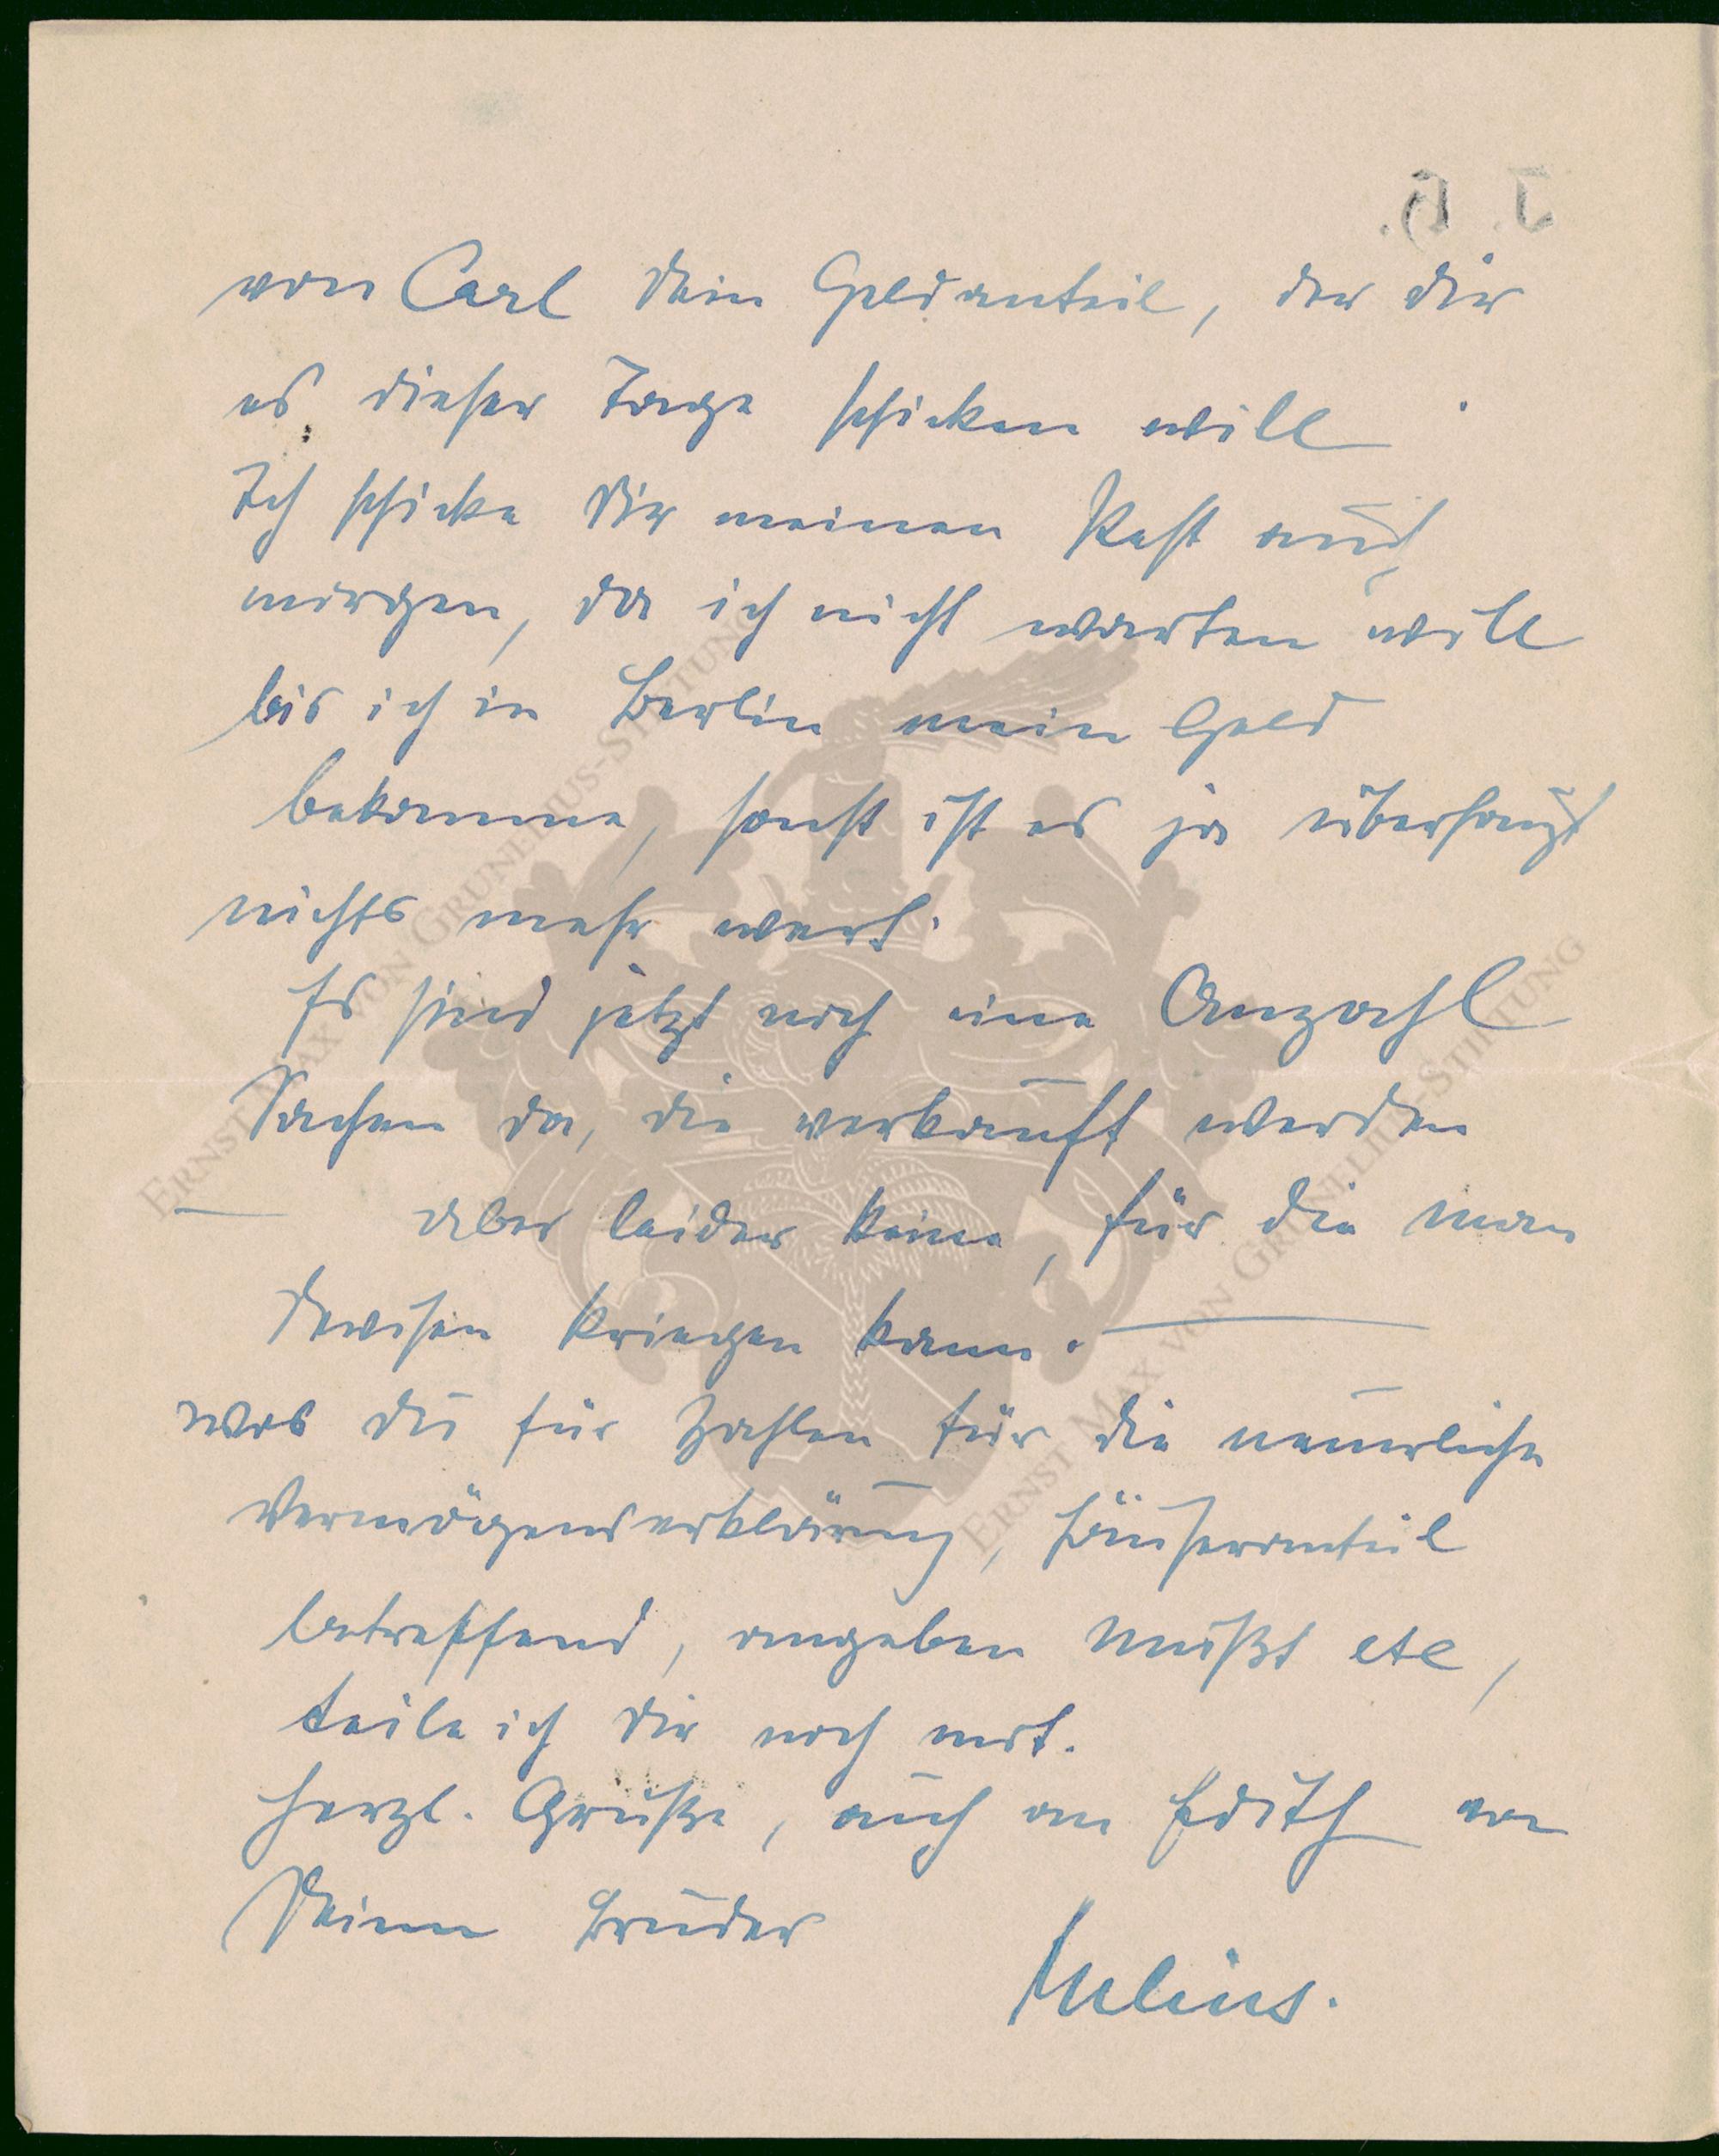 von Carl dein Geldanteil, der dir
es dieser Tage schicken will.
Ich schicke dir meinen Rest auch
morgen, da ich nicht warten will
bis ich in Berlin mein Geld
bekomme, sonst ist es ja überhaupt
nichts mehr wert.
Es sind jetzt noch eine Anzahl
Sachen da, die verkauft werden
— aber leider keine, für die man
Devisen kriegen kann. —
was du für Zahlen für die neuerliche
Vermögenserklärung, Häuseranteil
betreffend, angeben mußt etc,
teile ich dir noch mit.
Herzl. Grüße, auch an Edith von
Deinem Bruder
Julius.
ERNST MAX VON GRUNELIUS-STIFTUNG
ERNST MAX VON GRUNELIUS-STIFTUNG